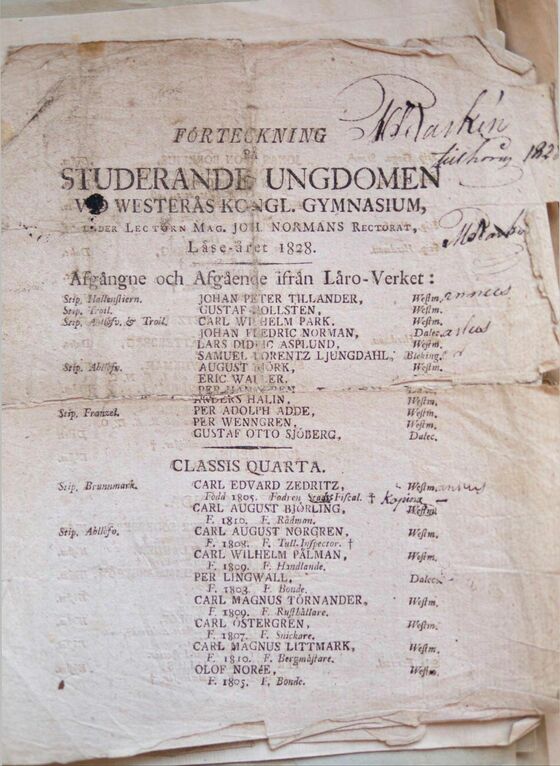 FÖRTECKNING
PÅ
STUDERANDE UNGDOMEN
VID WESTERÅS KONGL. GYMNASIUM,
UNDER LECTORN MAG. JOH. NORMANS RECTORAT,
Läse-året 1828.
Afgångne och Afgående ifrån Läro-Verket:
Stip. Hallenstiern. JOHAN PETER TILLANDER, Westm.
Stip. Troil. GUSTAF HOLLSTEN, Westm.
Stip. Abllöfo. & Troil. CARL WILHELM PARK. Westm.
JOHAN FREDRIC NORMAN, Dalec.
LARS DIDRIC ASPLUND, Westm.
SAMUEL LORENTZ LJUNGDAHL, Bleking.
Stip. Abllöfo. AUGUST BJÖRK, Westm.
ERIC WALLER.
PER
ANDERS HALIN, Westm.
Stip. Franzel. PER ADOLPH ADDE, Westm.
PER WENNGREN, Westm.
GUSTAF OTTO SJÖBERG, Dalec.
CLASSIS QUARTA.
Stip. Brunnmark. CARL EDVARD ZEDRITZ, Westm.
Född 1805. Fadren Stads Fiscal. † Köping
CARL AUGUST BJÖRLING, Westm.
F. 1810. F. Rådman.
Stip. Abllöfo. CARL AUGUST NORGREN, Westm.
F. 1808. F. Tull-Inspector. †
CARL WILHELM PÅLMAN, Westm.
F. 1809. F. Handlande.
PER LINGWALL, Dalec.
F. 1803. F. Bonde.
CARL MAGNUS TÖRNANDER, Westm.
F. 1809. F. Rusthållare.
CARL ÖSTERGREN, Westm.
F. 1807. F. Snickare.
CARL MAGNUS LITTMARK, Westm.
F. 1810. F. Bergmästare.
OLOF NORÉE, Westm.
F. 1805. F. Bonde.